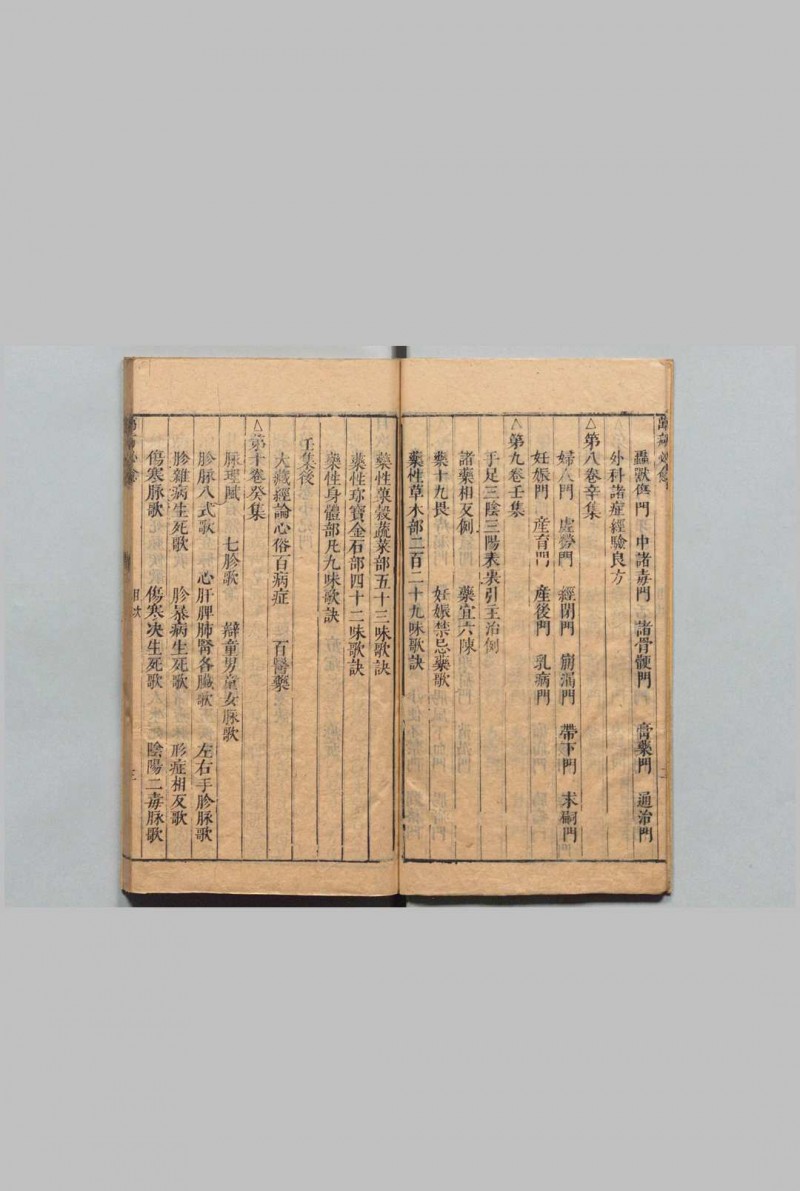 蟲獸傷門　中諸毒門　諸骨髓門　膏藥門　通治門
外科諸症經驗良方
△第八卷辛集
婦人門　虛勞門　經閉門　崩漏門　帶下門　求嗣門
妊娠門　産育門　產後門　乳病門
△第九卷壬集
手足三陰三陽表裏引主治例
諸藥相反例　藥宜六陳
藥十九畏　妊娠禁忌藥歌
藥性草木部二百二十九味歌訣
藥性菓穀蔬菜部五十三味歌訣
藥性珎寶金石部四十二味歌訣
藥性身體部凡九味歌訣
壬集後
大藏經論心俗百病症　百醫藥
△第十卷癸集
脉理賦　七胗歌　辯童男童女脉歌
胗脉八式歌　心肝脾肺腎各臟歌　左右手胗脉歌
胗雜病生死歌　胗暴病生死歌　形症相反歌
傷寒脉歌　傷寒决生死歌　陰陽二毒脉歌
目次
三